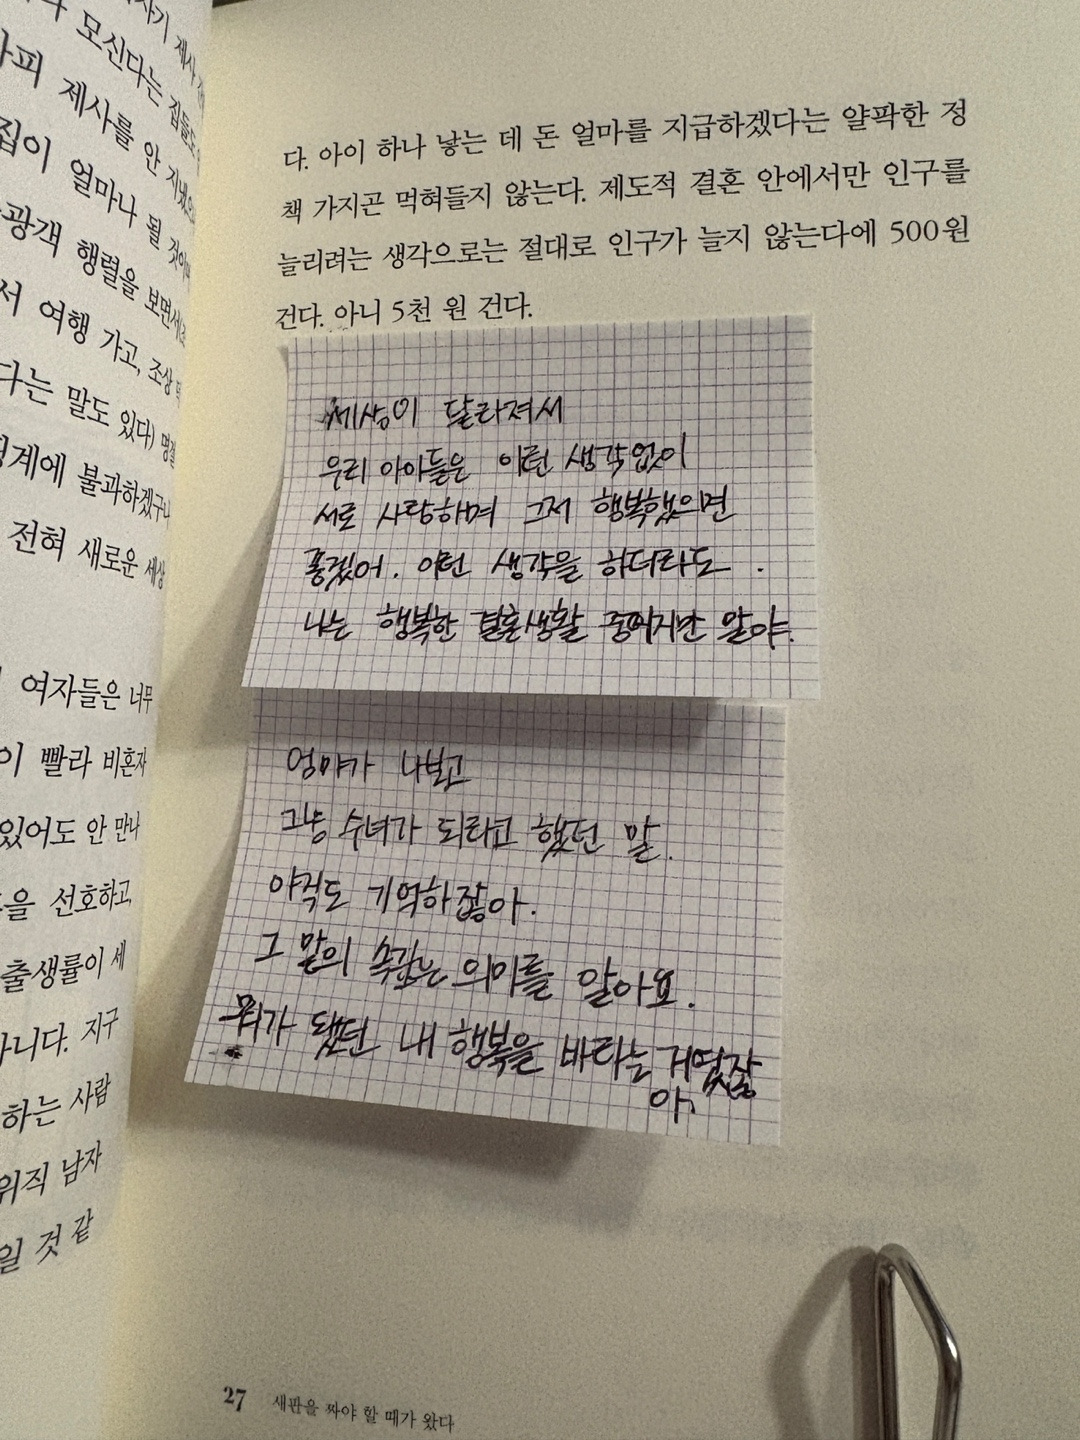 사기 제사
모신다는 집들도
피 제사를 안 지냈으
집이 얼마나 될 것이며
광객 행렬을 보면서
서 여행 가고, 조상
다는 말도 있다) 명절
형계에 불과하겠구나
전혀 새로운 세상
여자들은 너무
이 빨라 비혼자
있어도 안 만나
을 선호하고,
출생률이 세
아니다. 지구
하는 사람
위직 남자
일 것 같
다. 아이 하나 낳는 데 돈 얼마를 지급하겠다는 얄팍한 정
책 가지곤 먹혀들지 않는다. 제도적 결혼 안에서만 인구를
늘리려는 생각으로는 절대로 인구가 늘지 않는다에 500원
건다. 아니 5천 원 건다.
세상이 달라져서
우리 아아들은 이런 생각없이
서로 사랑하며 그저 행복했으면
좋겠어. 이런 생각을 하더라도.
나는 행복한 결혼생활 중이지만 말야.
엄마가 나보고
그냥 수녀가 되라고 했던 말.
아직도 기억하잖아.
그 말의 속깊은 의미를 알아요.
뭐가 됐던 내 행복을 바라는 거였잖
아.
27 새판을 짜야 할 때가 왔다